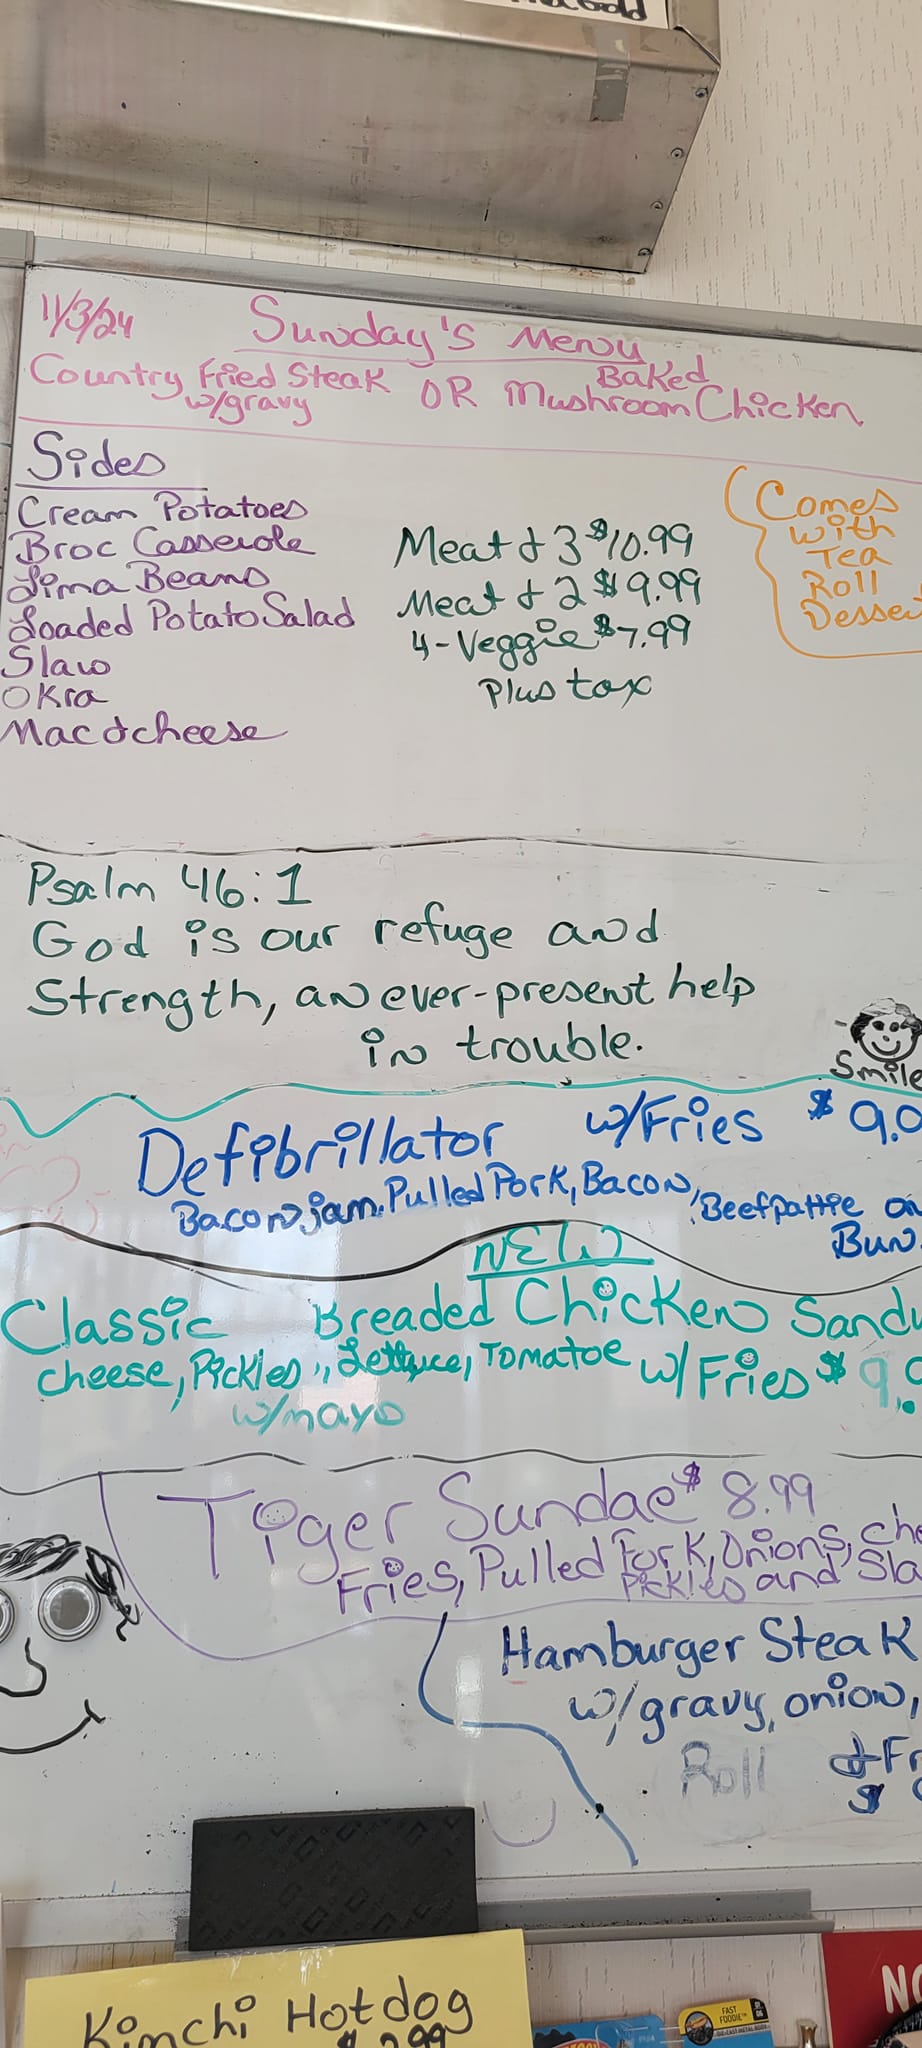 11/3/24 Sunday's Menu
Country Fried Steak w/gravy OR Baked Mushroom Chicken
Sides
Cream Potatoes
Broc Casserole
Lima Beans
Loaded Potato Salad
Slaw
Okra
Mac & cheese
Meat & 3 $10.99
Meat & 2 $9.99
4-Veggie $7.99
Plus tax
Comes
with
Tea
Roll
Psalm 46:1
God is our refuge and
Strength, an ever-present help
in trouble.
Smile
Defibrillator w/Fries $
Bacon jam, Pulled Pork, Bacon, Beef pattie
Bun
NEW
Classic Breaded Chicken
Cheese, Pickles, Lettuce, Tomatoe w/Fries $
w/mayo
Tiger Sundae $8.99
Fries, Pulled Pork, Onions,
Pickles and
Hamburger Steak
w/gravy, onion,
Roll &
$
Kimchi Hotdog
FAST
FOODIE